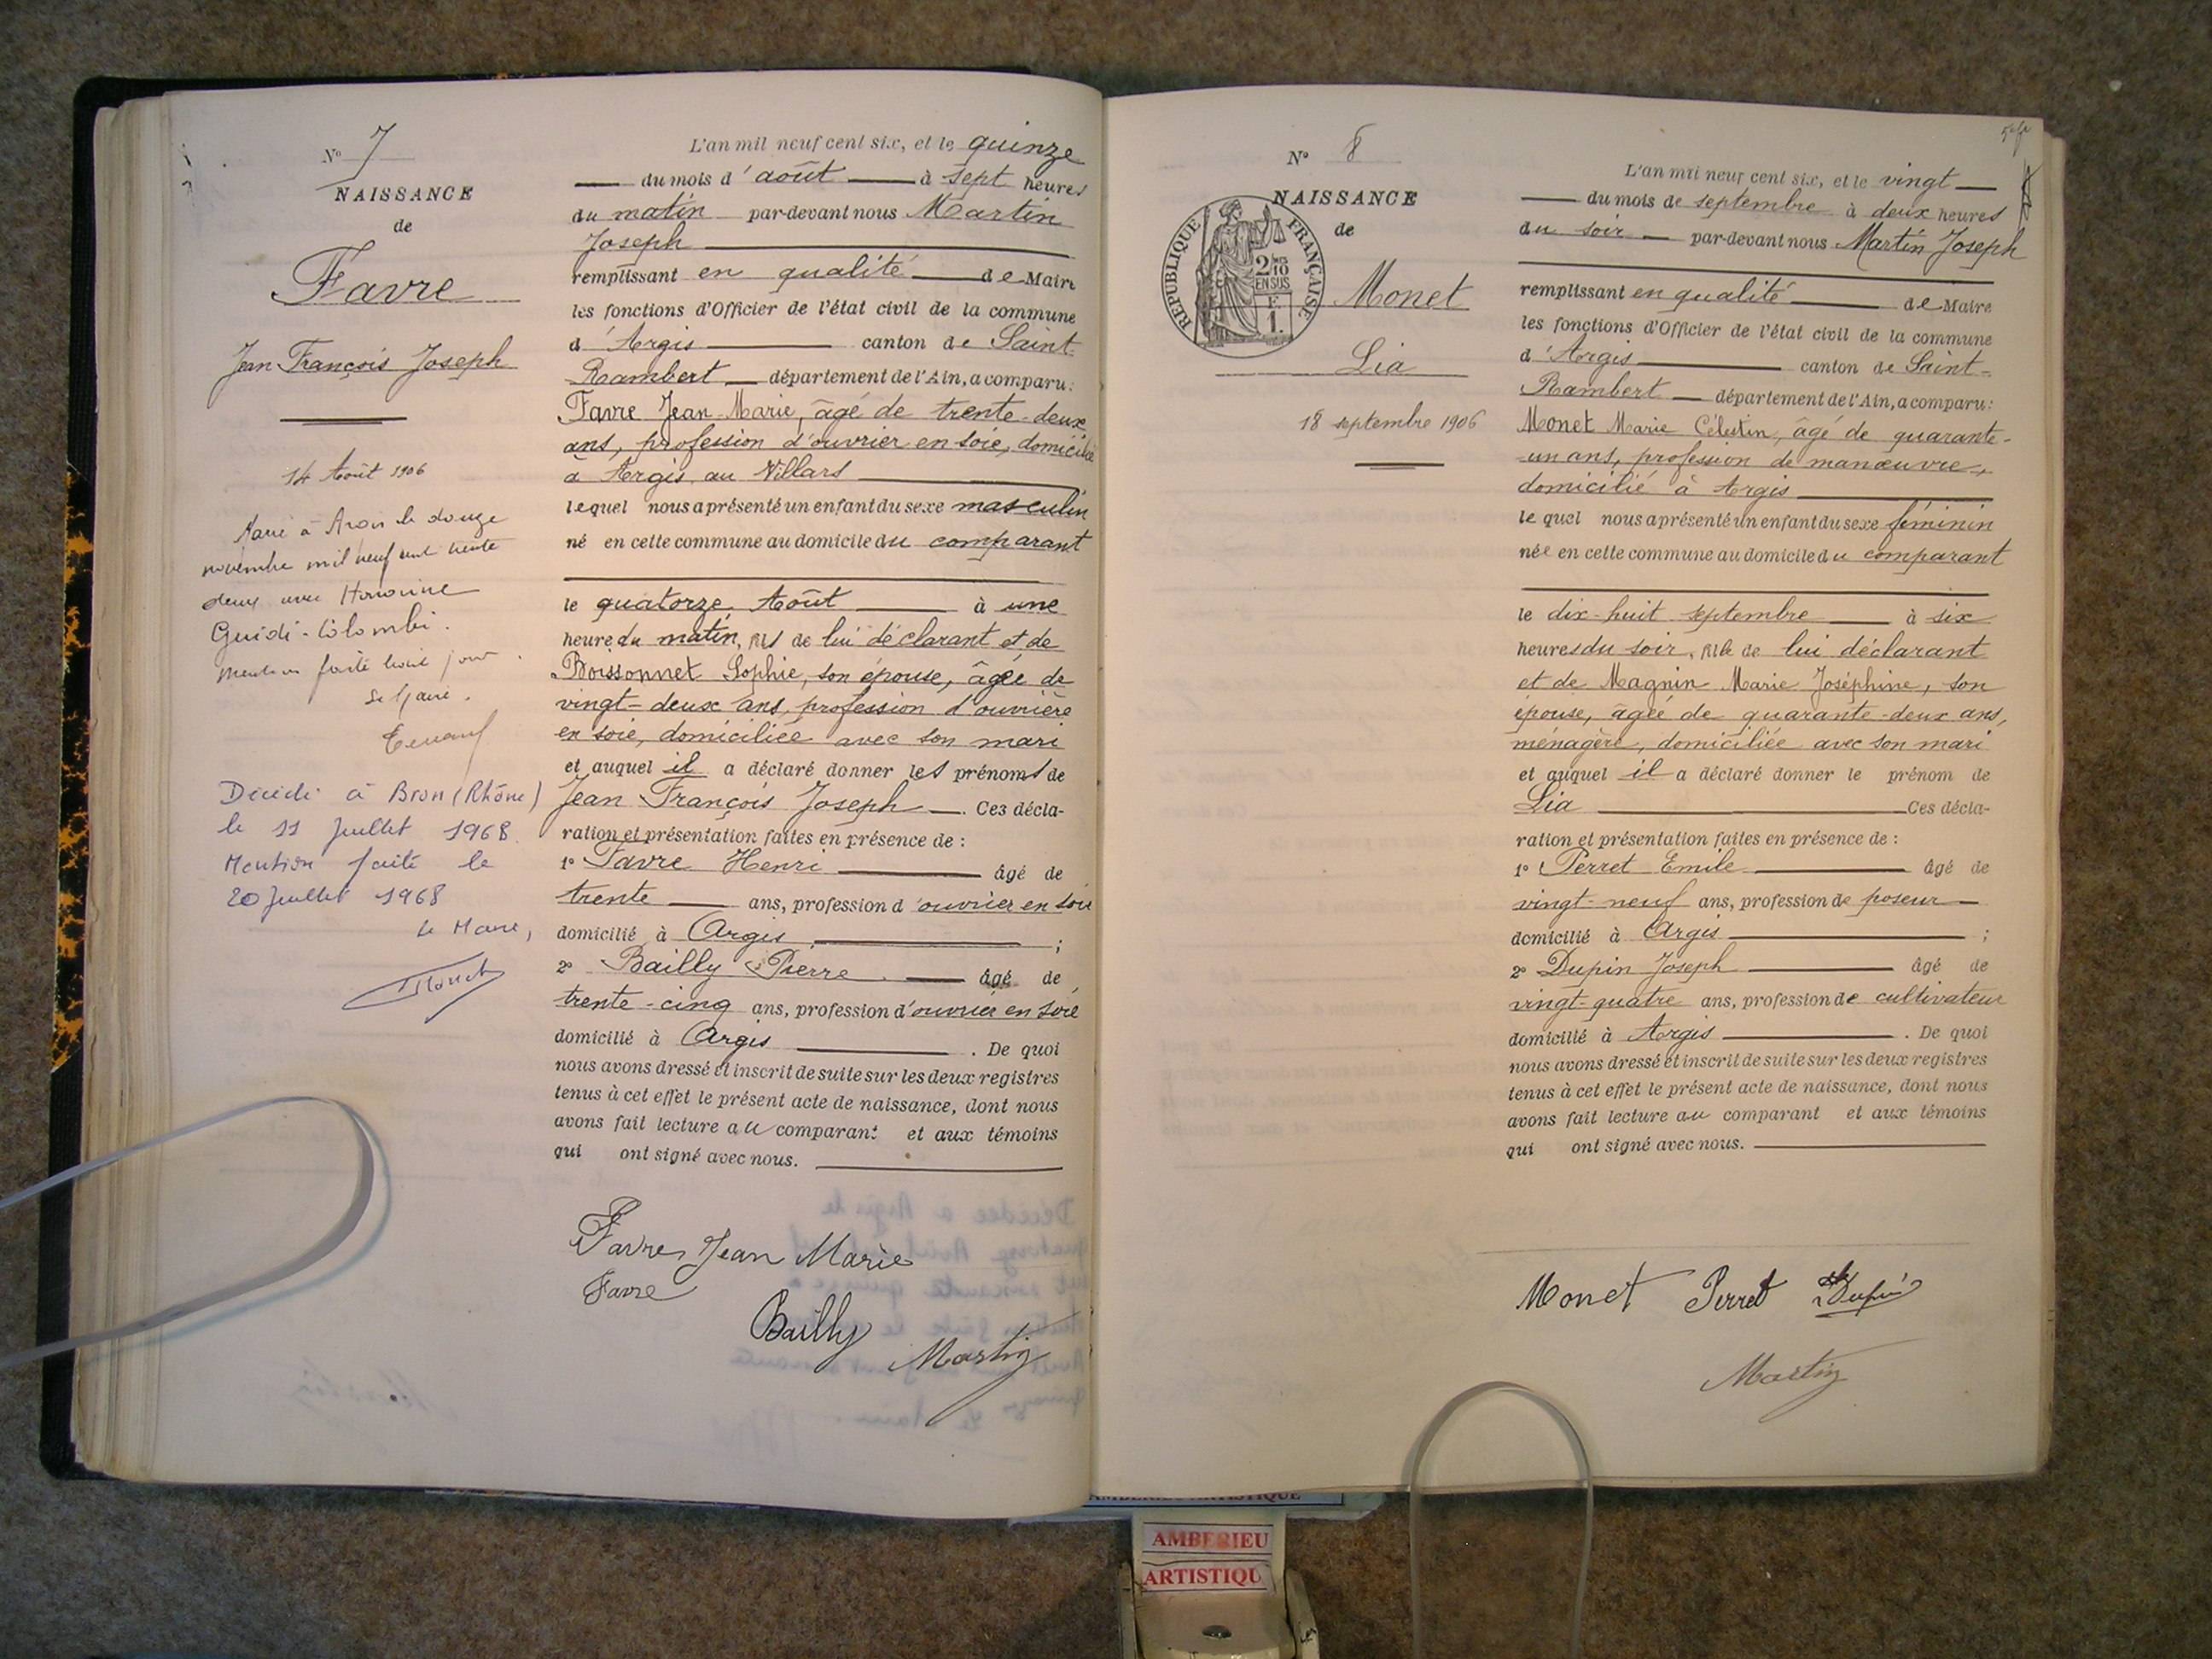 N° 7
NAISSANCE
de
Favre
Jean François Joseph
14 Août 1906
Marié à Argis le douze
novembre mil neuf cent trente
deux avec Honorine
Guidi-Colombi.
Mention faite huit jour
Le Maire.
Décédé à Bron (Rhône)
le 11 Juillet 1968
Mention faite le
20 Juillet 1968
Le Maire,
L'an mil neuf cent six, et le quinze
du mois d'août à sept heures
du matin par-devant nous Martin
Joseph
remplissant en qualité de Maire
les fonctions d'Officier de l'état civil de la commune
d'Argis canton de Saint-
Rambert département de l'Ain, a comparu:
Favre Jean-Marie, âgé de trente-deux
ans, profession d'ouvrier en soie, domicilié
à Argis, au Villars
lequel nous a présenté un enfant du sexe masculin
né en cette commune au domicile du comparant
le quatorze Août à une
heure du matin, fils de lui déclarant et de
Boissonnet Sophie, son épouse, âgée de
vingt-deux ans, profession d'ouvrière
en soie, domiciliée avec son mari
et auquel il a déclaré donner les prénoms de
Jean François Joseph. Ces décla-
ration et présentation faites en présence de :
1° Favre Henri âgé de
trente ans, profession d'ouvrier en soie
domicilié à Argis ;
2° Bailly Pierre âgé de
trente-cinq ans, profession d'ouvrier en soie
domicilié à Argis . De quoi
nous avons dressé et inscrit de suite sur les deux registres
tenus à cet effet le présent acte de naissance, dont nous
avons fait lecture au comparant et aux témoins
qui ont signé avec nous.
Favre Jean Marie
Favre
Bailly Martin
N° 8
NAISSANCE
de
RÉPUBLIQUE FRANÇAISE
2/10
EN SUS
F.
1.
Monet
Lia
18 septembre 1906
L'an mil neuf cent six, et le vingt
du mois de septembre à deux heures
du soir par-devant nous Martin Joseph
remplissant en qualité de Maire
les fonctions d'Officier de l'état civil de la commune
d'Argis canton de Saint-
Rambert département de l'Ain, a comparu:
Monet Marie Célestin, âgé de quarante-
un ans, profession de manœuvre,
domicilié à Argis
lequel nous a présenté un enfant du sexe féminin
née en cette commune au domicile du comparant
le dix-huit septembre à six
heures du soir, fille de lui déclarant
et de Magnin Marie Joséphine, son
épouse, âgée de quarante-deux ans,
ménagère, domiciliée avec son mari
et auquel il a déclaré donner le prénom de
Lia Ces décla-
ration et présentation faites en présence de :
1° Perret Emile âgé de
vingt-neuf ans, profession de poseur
domicilié à Argis ;
2° Dupin Joseph âgé de
vingt-quatre ans, profession de cultivateur
domicilié à Argis . De quoi
nous avons dressé et inscrit de suite sur les deux registres
tenus à cet effet le présent acte de naissance, dont nous
avons fait lecture au comparant et aux témoins
qui ont signé avec nous.
Monet Perret Dupin
Martin
AMBERIEU ARTISTIQUE
AMBERIEU
ARTISTIQU